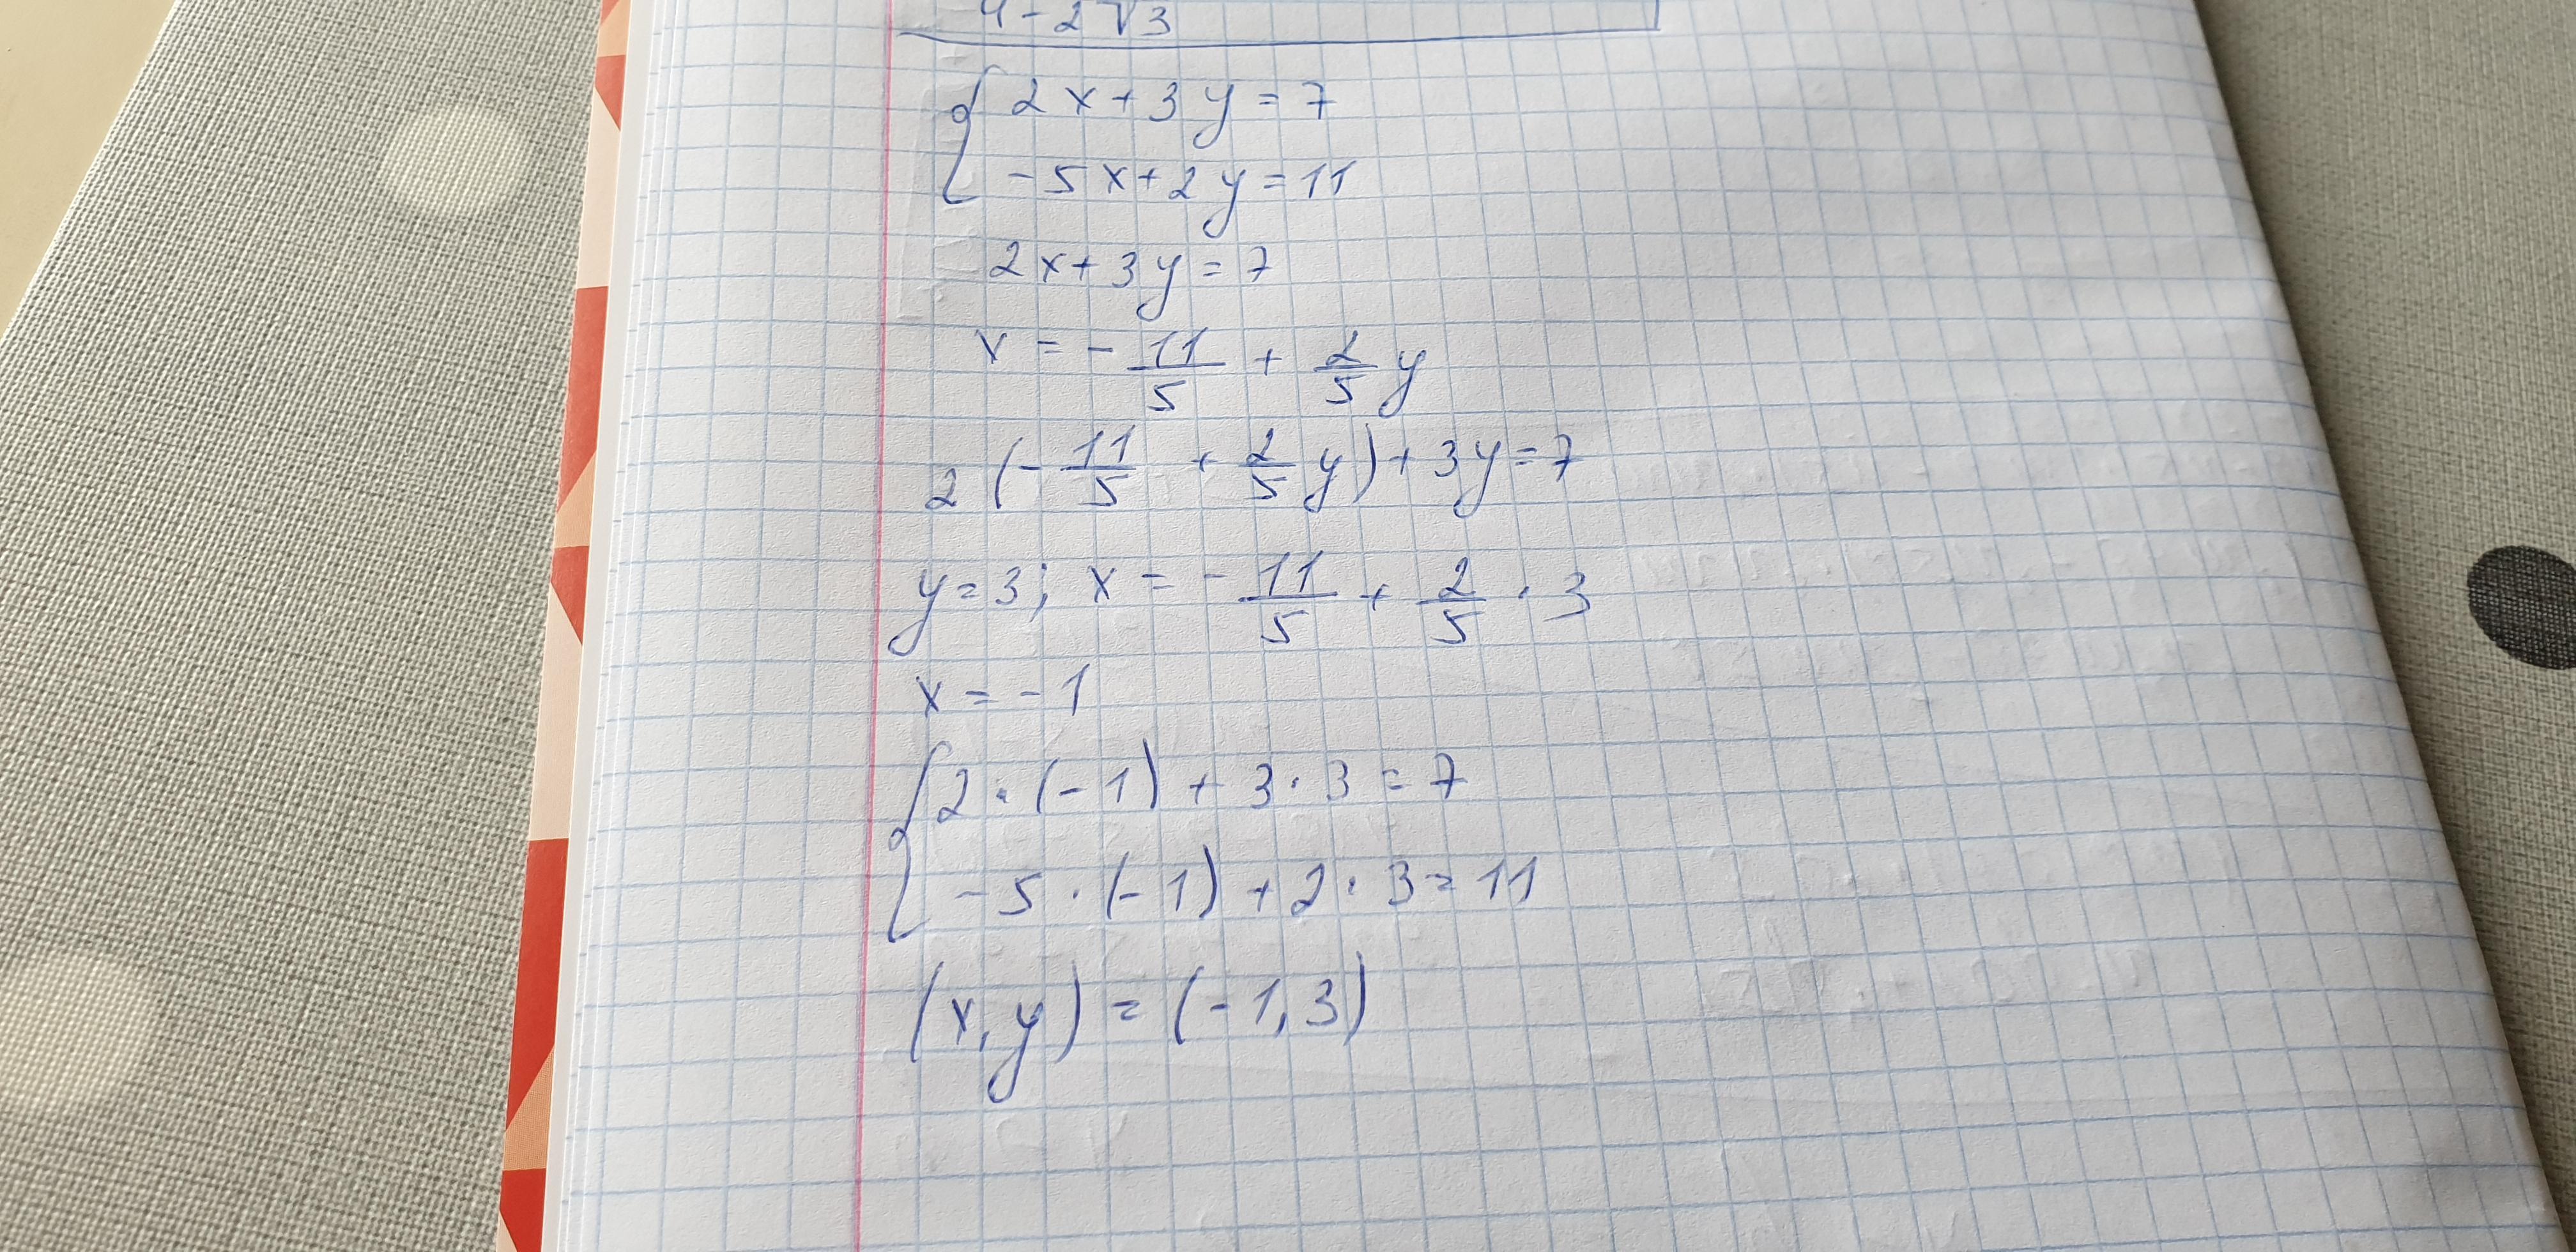 4 - 2√3
{ 2x + 3y = 7
-5x + 2y = 11
2x + 3y = 7
x = - 11/5 + 2/5 y
2 (- 11/5 + 2/5 y) + 3y = 7
y = 3; x = - 11/5 + 2/5 · 3
x = -1
{ 2 · (-1) + 3 · 3 = 7
-5 · (-1) + 2 · 3 = 11
(x, y) = (-1, 3)